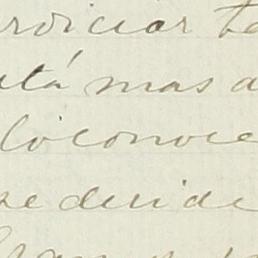 rdiciar te
tá mas a
lo conoce
se decide